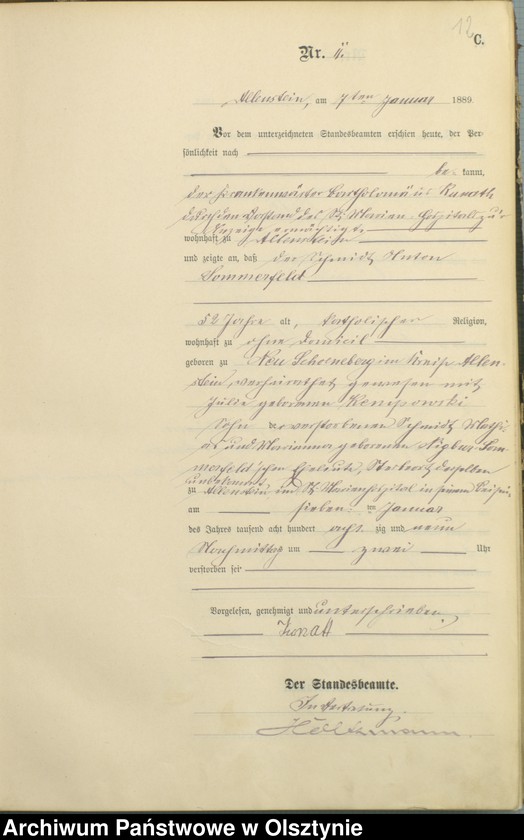 12
C.
Nr. 11.
Allenstein, am 7ten Januar 1889.
Vor dem unterzeichneten Standesbeamten erschien heute, der Per-
sönlichkeit nach
be- kannt,
der Krankenwärter Bartholomäus
des St. Marien-Hospitals zur
Anzeige ermächtigt
wohnhaft zu Allenstein
und zeigte an, daß der Schmidt Anton
Sommerfeld
52 Jahre alt, katholischer Religion,
wohnhaft zu ohne Domicil
geboren zu Neu Schoeneberg im Kreise Allen-
stein, verheirathet gewesen mit
Julie geborenen Kempowski
Sohn der verstorbenen Schmidt Mathi-
as und Marianna geborenen Som-
merfeld'schen Eheleute, Sterbeort derselben
unbekannt,
zu Allenstein im St. Marienhospital in seinem Beisein,
am sieben ten Januar
des Jahres tausend acht hundert acht zig und neun
Nachmittag um zwei Uhr
verstorben sei
Vorgelesen, genehmigt und unterschrieben
Der Standesbeamte.
In Vertretung.
Höltzmann.
Archiwum Państwowe w Olsztynie